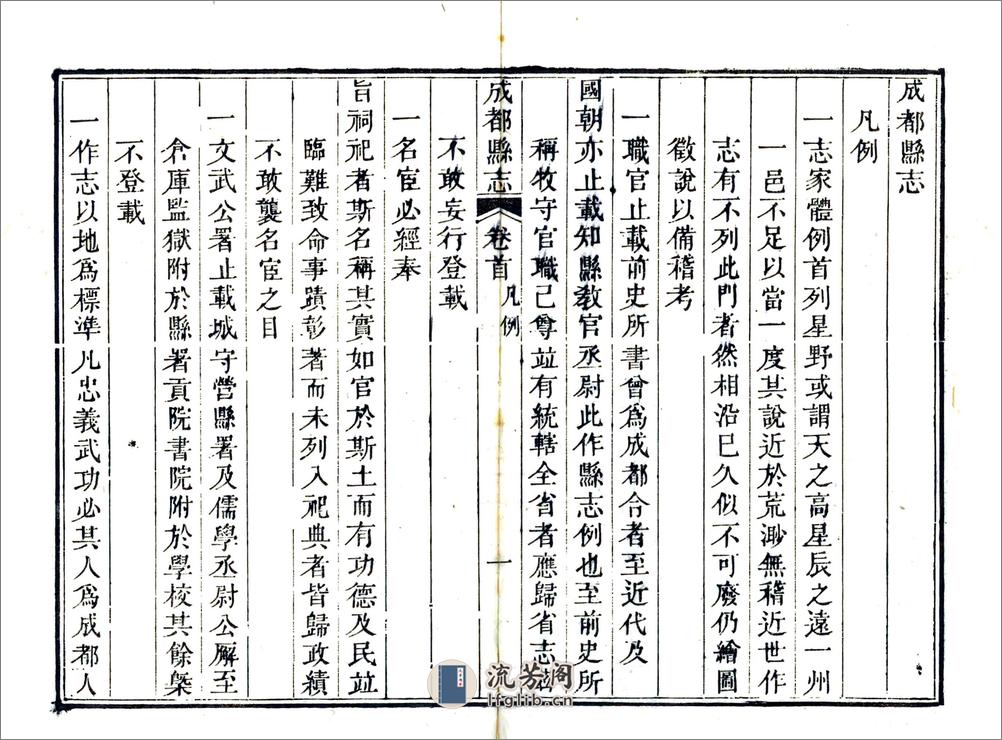 成都縣志
凡例
一志家體例首列星野或謂天之高星辰之遠一州
一邑不足以當一度其說近於荒渺無稽近世作
志有不列此門者然相沿已久似不可廢仍繪圖
徵說以備稽考
一職官止載前史所書曾爲成都令者至近代及
國朝亦止載知縣教官丞尉此作縣志例也至前史所
稱牧守官職已尊並有統轄全省者應歸省志茲
成都縣志 卷首 凡例 一
不敢妄行登載
一名宦必經奉
旨祠祀者斯名稱其實如官於斯土而有功德及民並
臨難致命事蹟彰著而未列入祀典者皆歸政績
不敢襲名宦之目
一文武公署止載城守營縣署及儒學丞尉公廨至
倉庫監獄附於縣署貢院書院附於學校其餘槩
不登載
一作志以地爲標準凡忠義武功必其人爲成都人
流芳阁
lfglib.cn